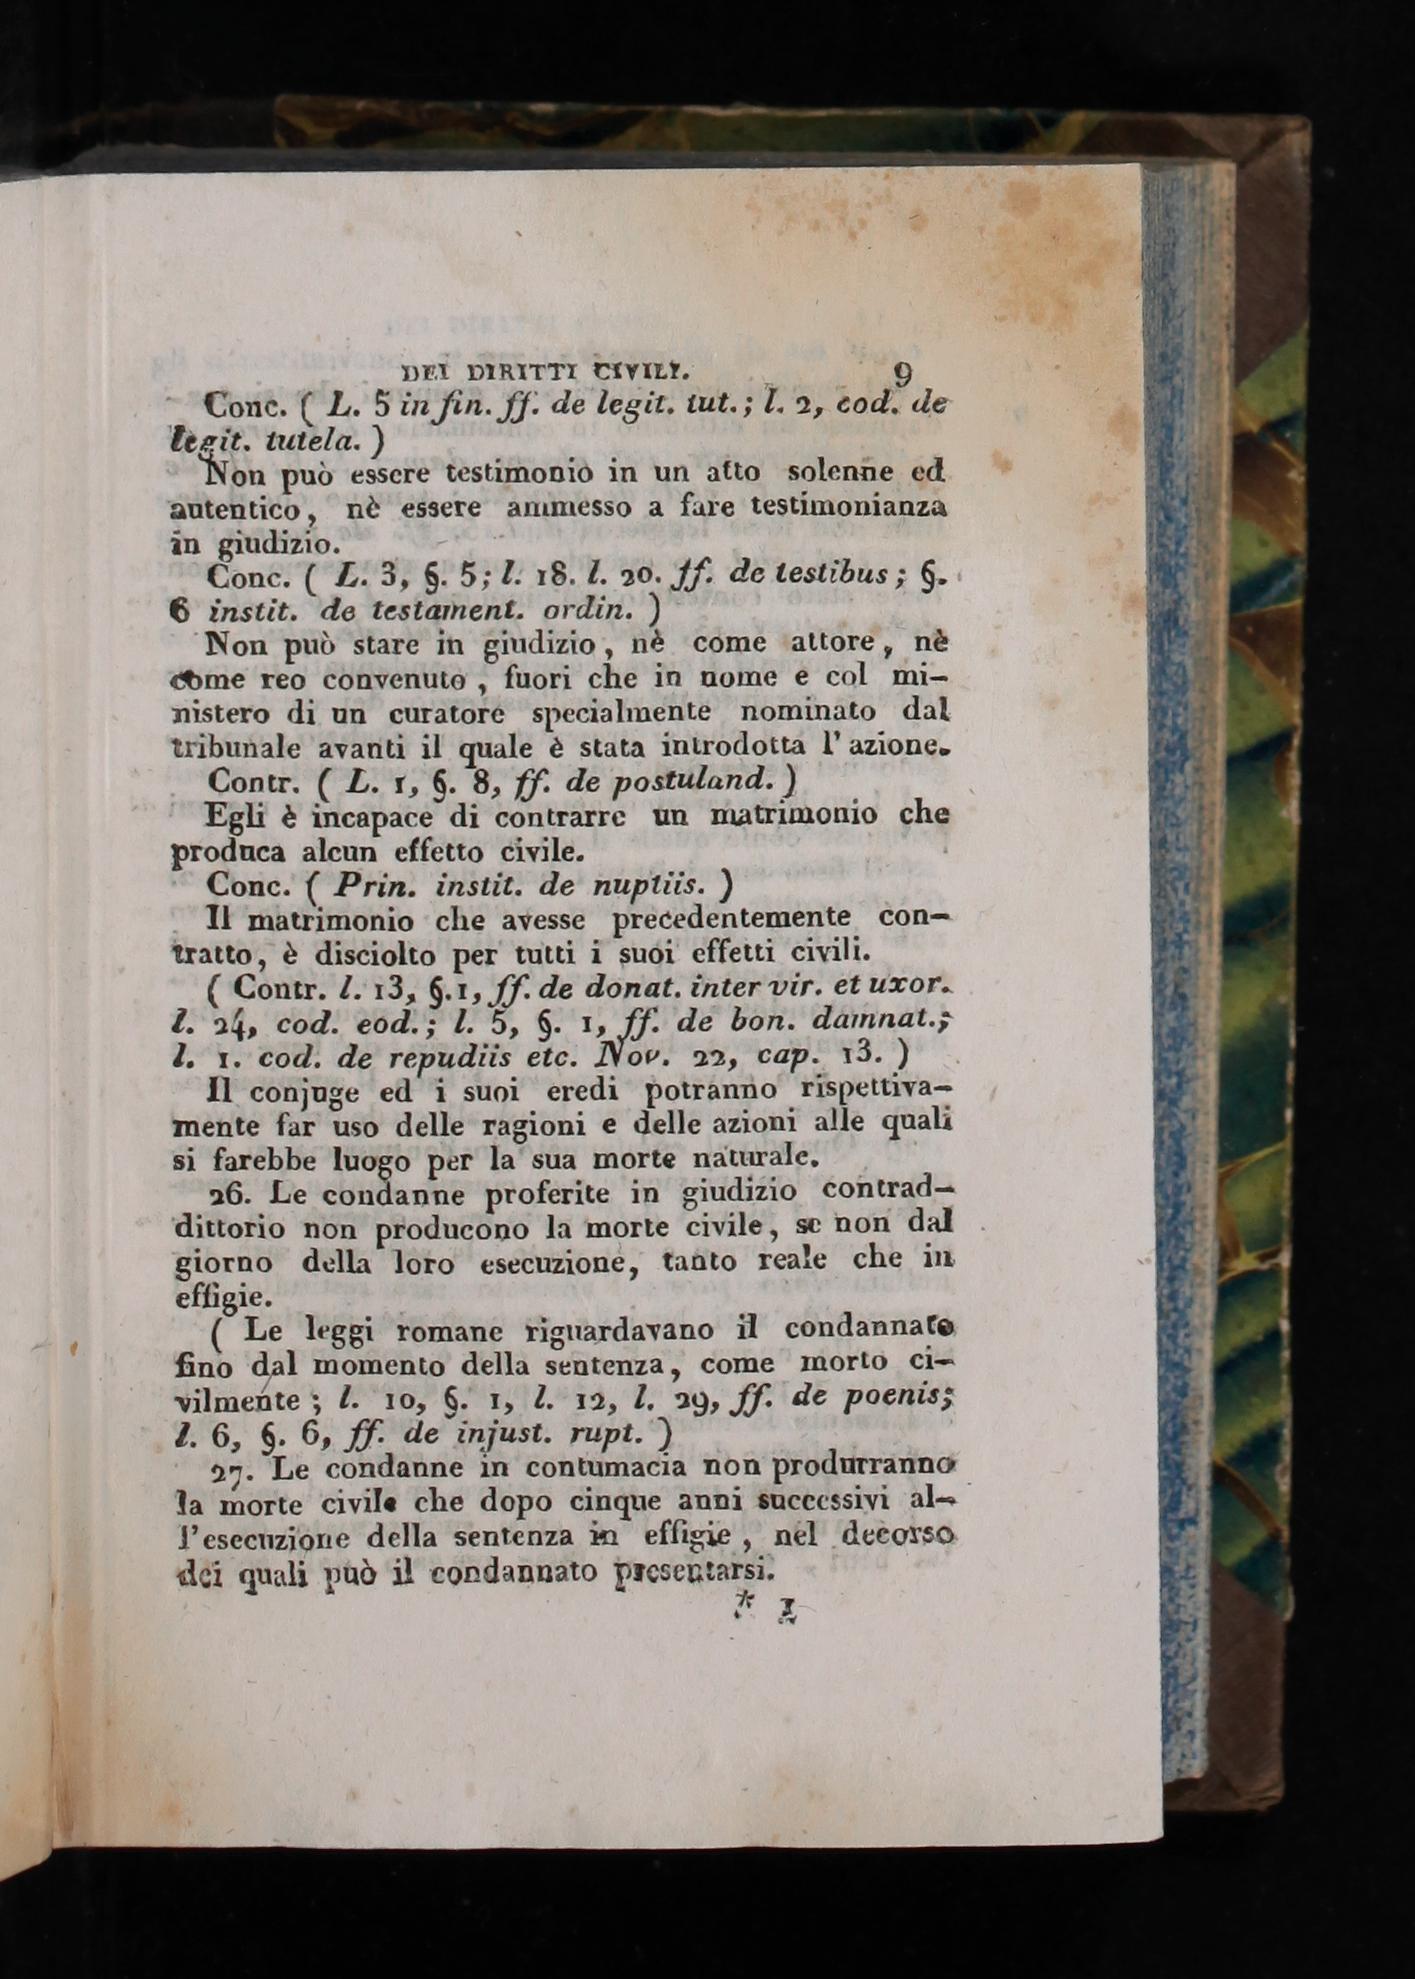 DEI DIRITTI CIVILI. 9
Conc. ( L. 5 in fin. ff. de legit. tut.; l. 2, cod. de
legit. tutela. )
Non può essere testimonio in un atto solenne ed
autentico, nè essere ammesso a fare testimonianza
in giudizio.
Conc. ( L. 3, §. 5; l. 18. l. 20. ff. de testibus; §.
6 instit. de testament. ordin. )
Non può stare in giudizio, nè come attore, nè
come reo convenuto, fuori che in nome e col mi-
nistero di un curatore specialmente nominato dal
tribunale avanti il quale è stata introdotta l'azione.
Contr. ( L. 1, §. 8, ff. de postuland. )
Egli è incapace di contrarre un matrimonio che
produca alcun effetto civile.
Conc. ( Prin. instit. de nuptiis. )
Il matrimonio che avesse precedentemente con-
tratto, è disciolto per tutti i suoi effetti civili.
( Contr. l. 13, §. 1, ff. de donat. inter vir. et uxor.
l. 24, cod. eod.; l. 5, §. 1, ff. de bon. damnat.;
l. 1. cod. de repudiis etc. Nov. 22, cap. 13. )
Il conjuge ed i suoi eredi potranno rispettiva-
mente far uso delle ragioni e delle azioni alle quali
si farebbe luogo per la sua morte naturale.
26. Le condanne proferite in giudizio contrad-
dittorio non producono la morte civile, se non dal
giorno della loro esecuzione, tanto reale che in
effigie.
( Le leggi romane riguardavano il condannato
fino dal momento della sentenza, come morto ci-
vilmente; l. 10, §. 1, l. 12, l. 29, ff. de poenis;
l. 6, §. 6, ff. de injust. rupt. )
27. Le condanne in contumacia non produrranno
la morte civile che dopo cinque anni successivi al-
l'esecuzione della sentenza in effigie, nel decorso
dei quali può il condannato presentarsi.
* 1